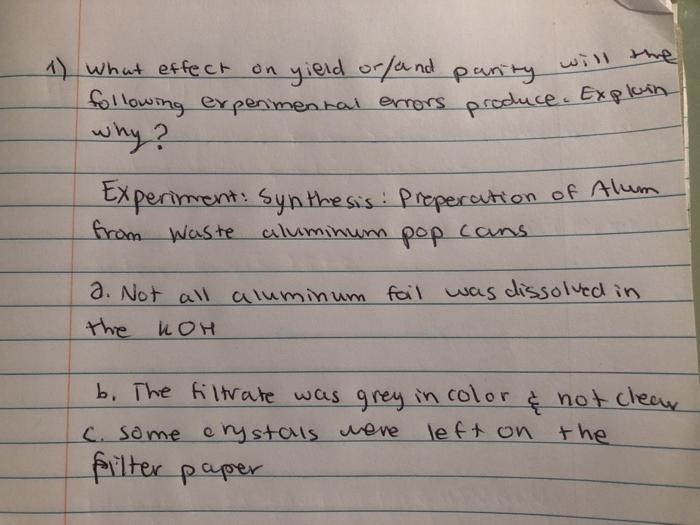 1) What effect on yield or/and purity will the
following experimental errors produce. Explain
why?
Experiment: Synthesis: Preperation of Alum
from waste aluminum pop cans
a. Not all aluminum foil was dissolved in
the KOH
b. The filtrate was grey in color & not clear
c. some crystals were left on the
filter paper